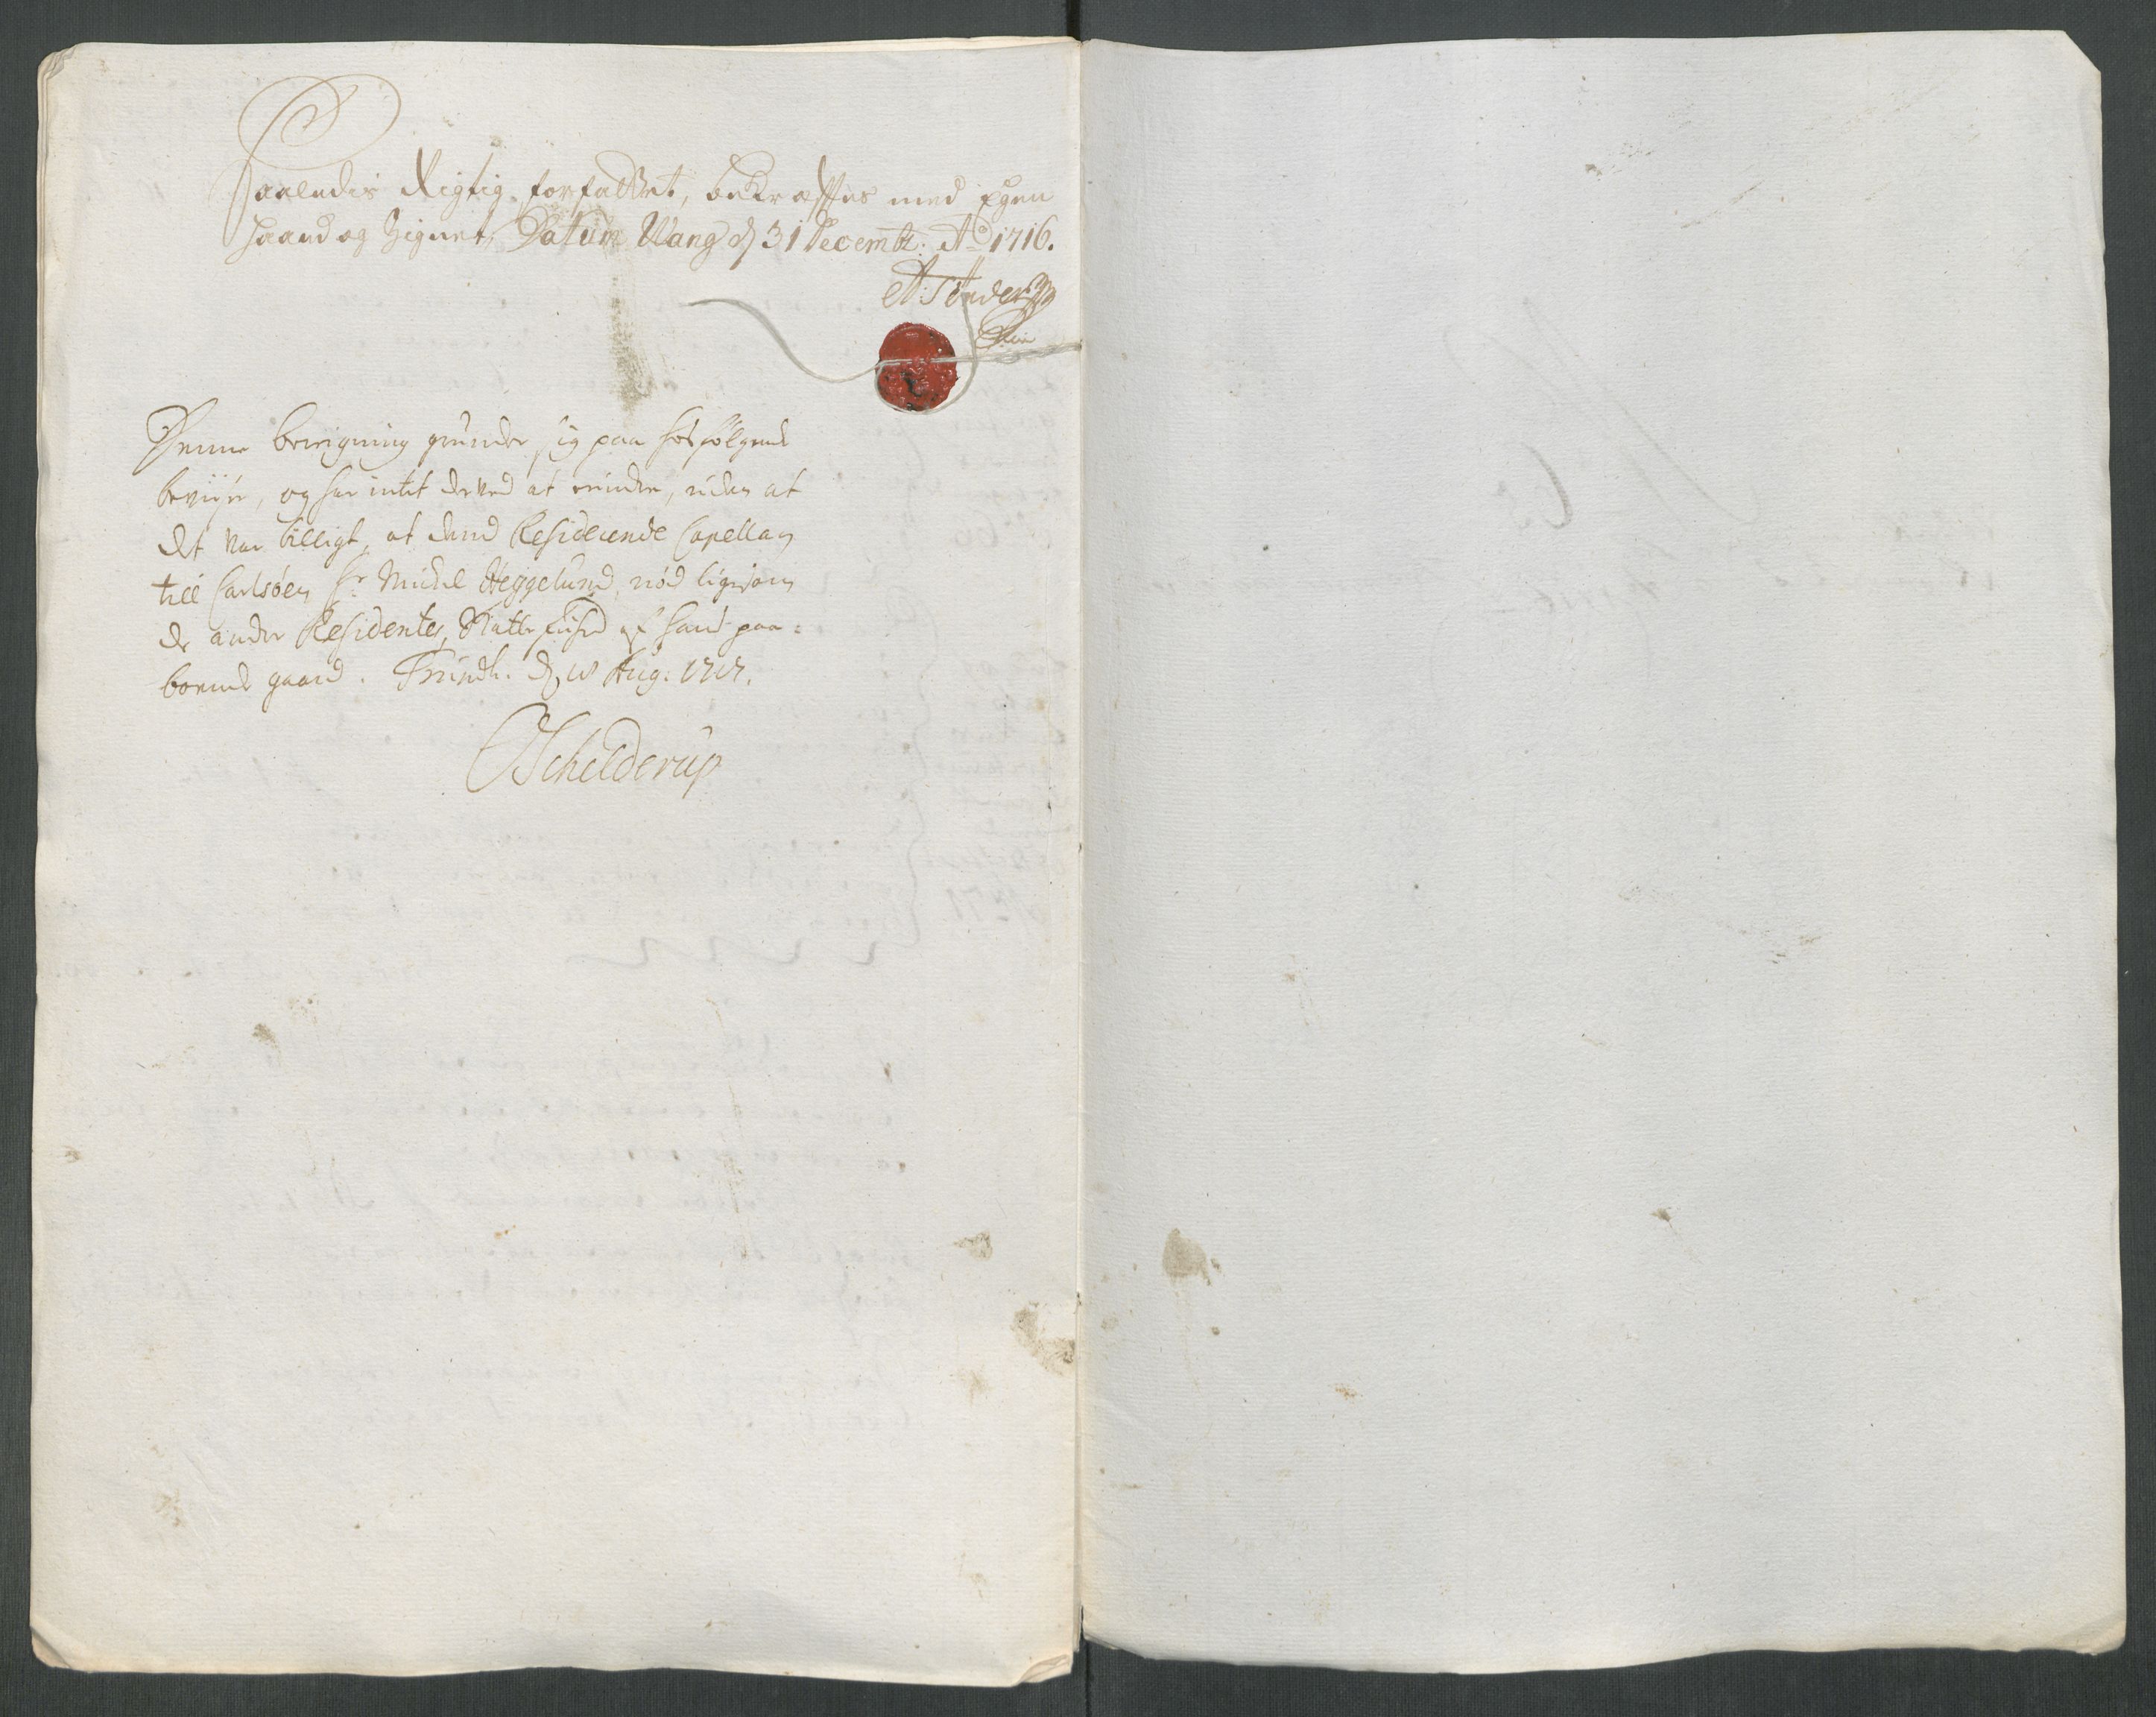 Saaledis Rigtig forfattet, bekræfftes med Egen
haand og Zignet, Datum Wang d 31 Decembr: Ao 1716.
A: Tønder
Denne bereigning grunder sig paa hosfølgende
beviise, og har intet derved at erindre, uden at
det var billigt, at dend Residerende Capellan
till Carlsöen Hr Michel Heggelund, nød ligesom
de andre Residenter, Skatte friehed af hans paa-
boende gaard. Trundh. d 18 Aug: 1717.
Schelderup